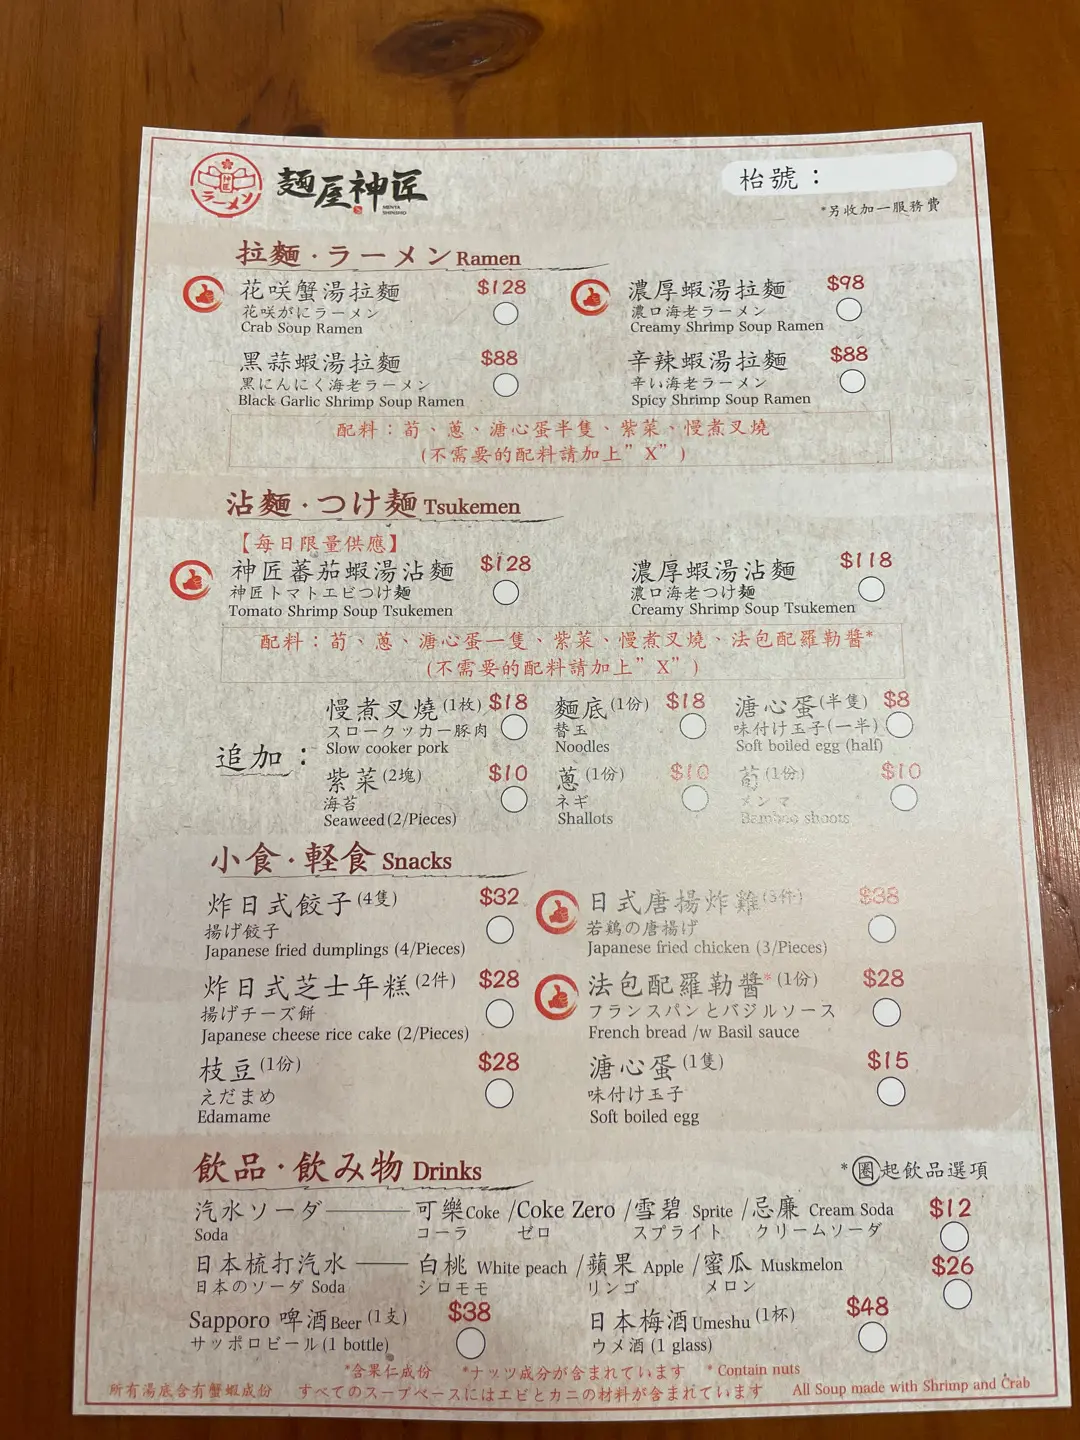 神匠
ラーメン
麵屋神匠
MENYA
SHINSHO
枱號：
*另收加一服務費
拉麵·ラーメン Ramen
花咲蟹湯拉麵 $128
花咲がにラーメン
Crab Soup Ramen
濃厚蝦湯拉麵 $98
濃口海老ラーメン
Creamy Shrimp Soup Ramen
黑蒜蝦湯拉麵 $88
黒にんにく海老ラーメン
Black Garlic Shrimp Soup Ramen
辛辣蝦湯拉麵 $88
辛い海老ラーメン
Spicy Shrimp Soup Ramen
配料：荀、蔥、溏心蛋半隻、紫菜、慢煮叉燒
(不需要的配料請加上"X")
沾麵·つけ麵 Tsukemen
【每日限量供應】
神匠蕃茄蝦湯沾麵 $128
神匠トマトエビつけ麵
Tomato Shrimp Soup Tsukemen
濃厚蝦湯沾麵 $118
濃口海老つけ麵
Creamy Shrimp Soup Tsukemen
配料：荀、蔥、溏心蛋一隻、紫菜、慢煮叉燒、法包配羅勒醬*
(不需要的配料請加上"X")
追加：
慢煮叉燒(1枚) $18
スロークッカー豚肉
Slow cooker pork
麵底(1份) $18
替玉
Noodles
溏心蛋(半隻) $8
味付け玉子(一半)
Soft boiled egg (half)
紫菜(2塊) $10
海苔
Seaweed(2/Pieces)
蔥(1份) $10
ネギ
Shallots
荀(1份) $10
メンマ
Bamboo shoots
小食·軽食 Snacks
炸日式餃子(4隻) $32
揚げ餃子
Japanese fried dumplings (4/Pieces)
日式唐揚炸雞(3件) $38
若鶏の唐揚げ
Japanese fried chicken (3/Pieces)
炸日式芝士年糕(2件) $28
揚げチーズ餅
Japanese cheese rice cake (2/Pieces)
法包配羅勒醬*(1份) $28
フランスパンとバジルソース
French bread /w Basil sauce
枝豆(1份) $28
えだまめ
Edamame
溏心蛋(1隻) $15
味付け玉子
Soft boiled egg
飲品·飲み物 Drinks
*圈起飲品選項
汽水ソーダ———可樂Coke /Coke Zero /雪碧 Sprite /忌廉 Cream Soda $12
Soda コーラ ゼロ スプライト クリームソーダ
日本梳打汽水——白桃 White peach /蘋果 Apple /蜜瓜 Muskmelon $26
日本のソーダ Soda シロモモ リンゴ メロン
Sapporo 啤酒Beer(1支) $38
サッポロビール(1 bottle)
日本梅酒Umeshu(1杯) $48
ウメ酒(1 glass)
*含果仁成份 *ナッツ成分が含まれています *Contain nuts
所有湯底含有蟹蝦成份 すべてのスープベースにはエビとカニの材料が含まれています All Soup made with Shrimp and Crab